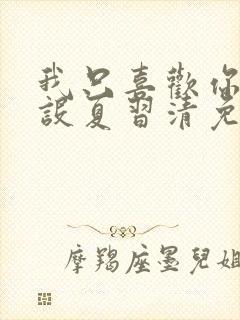 我只喜歡你
設夏習清免
摩羯座墨兒姐